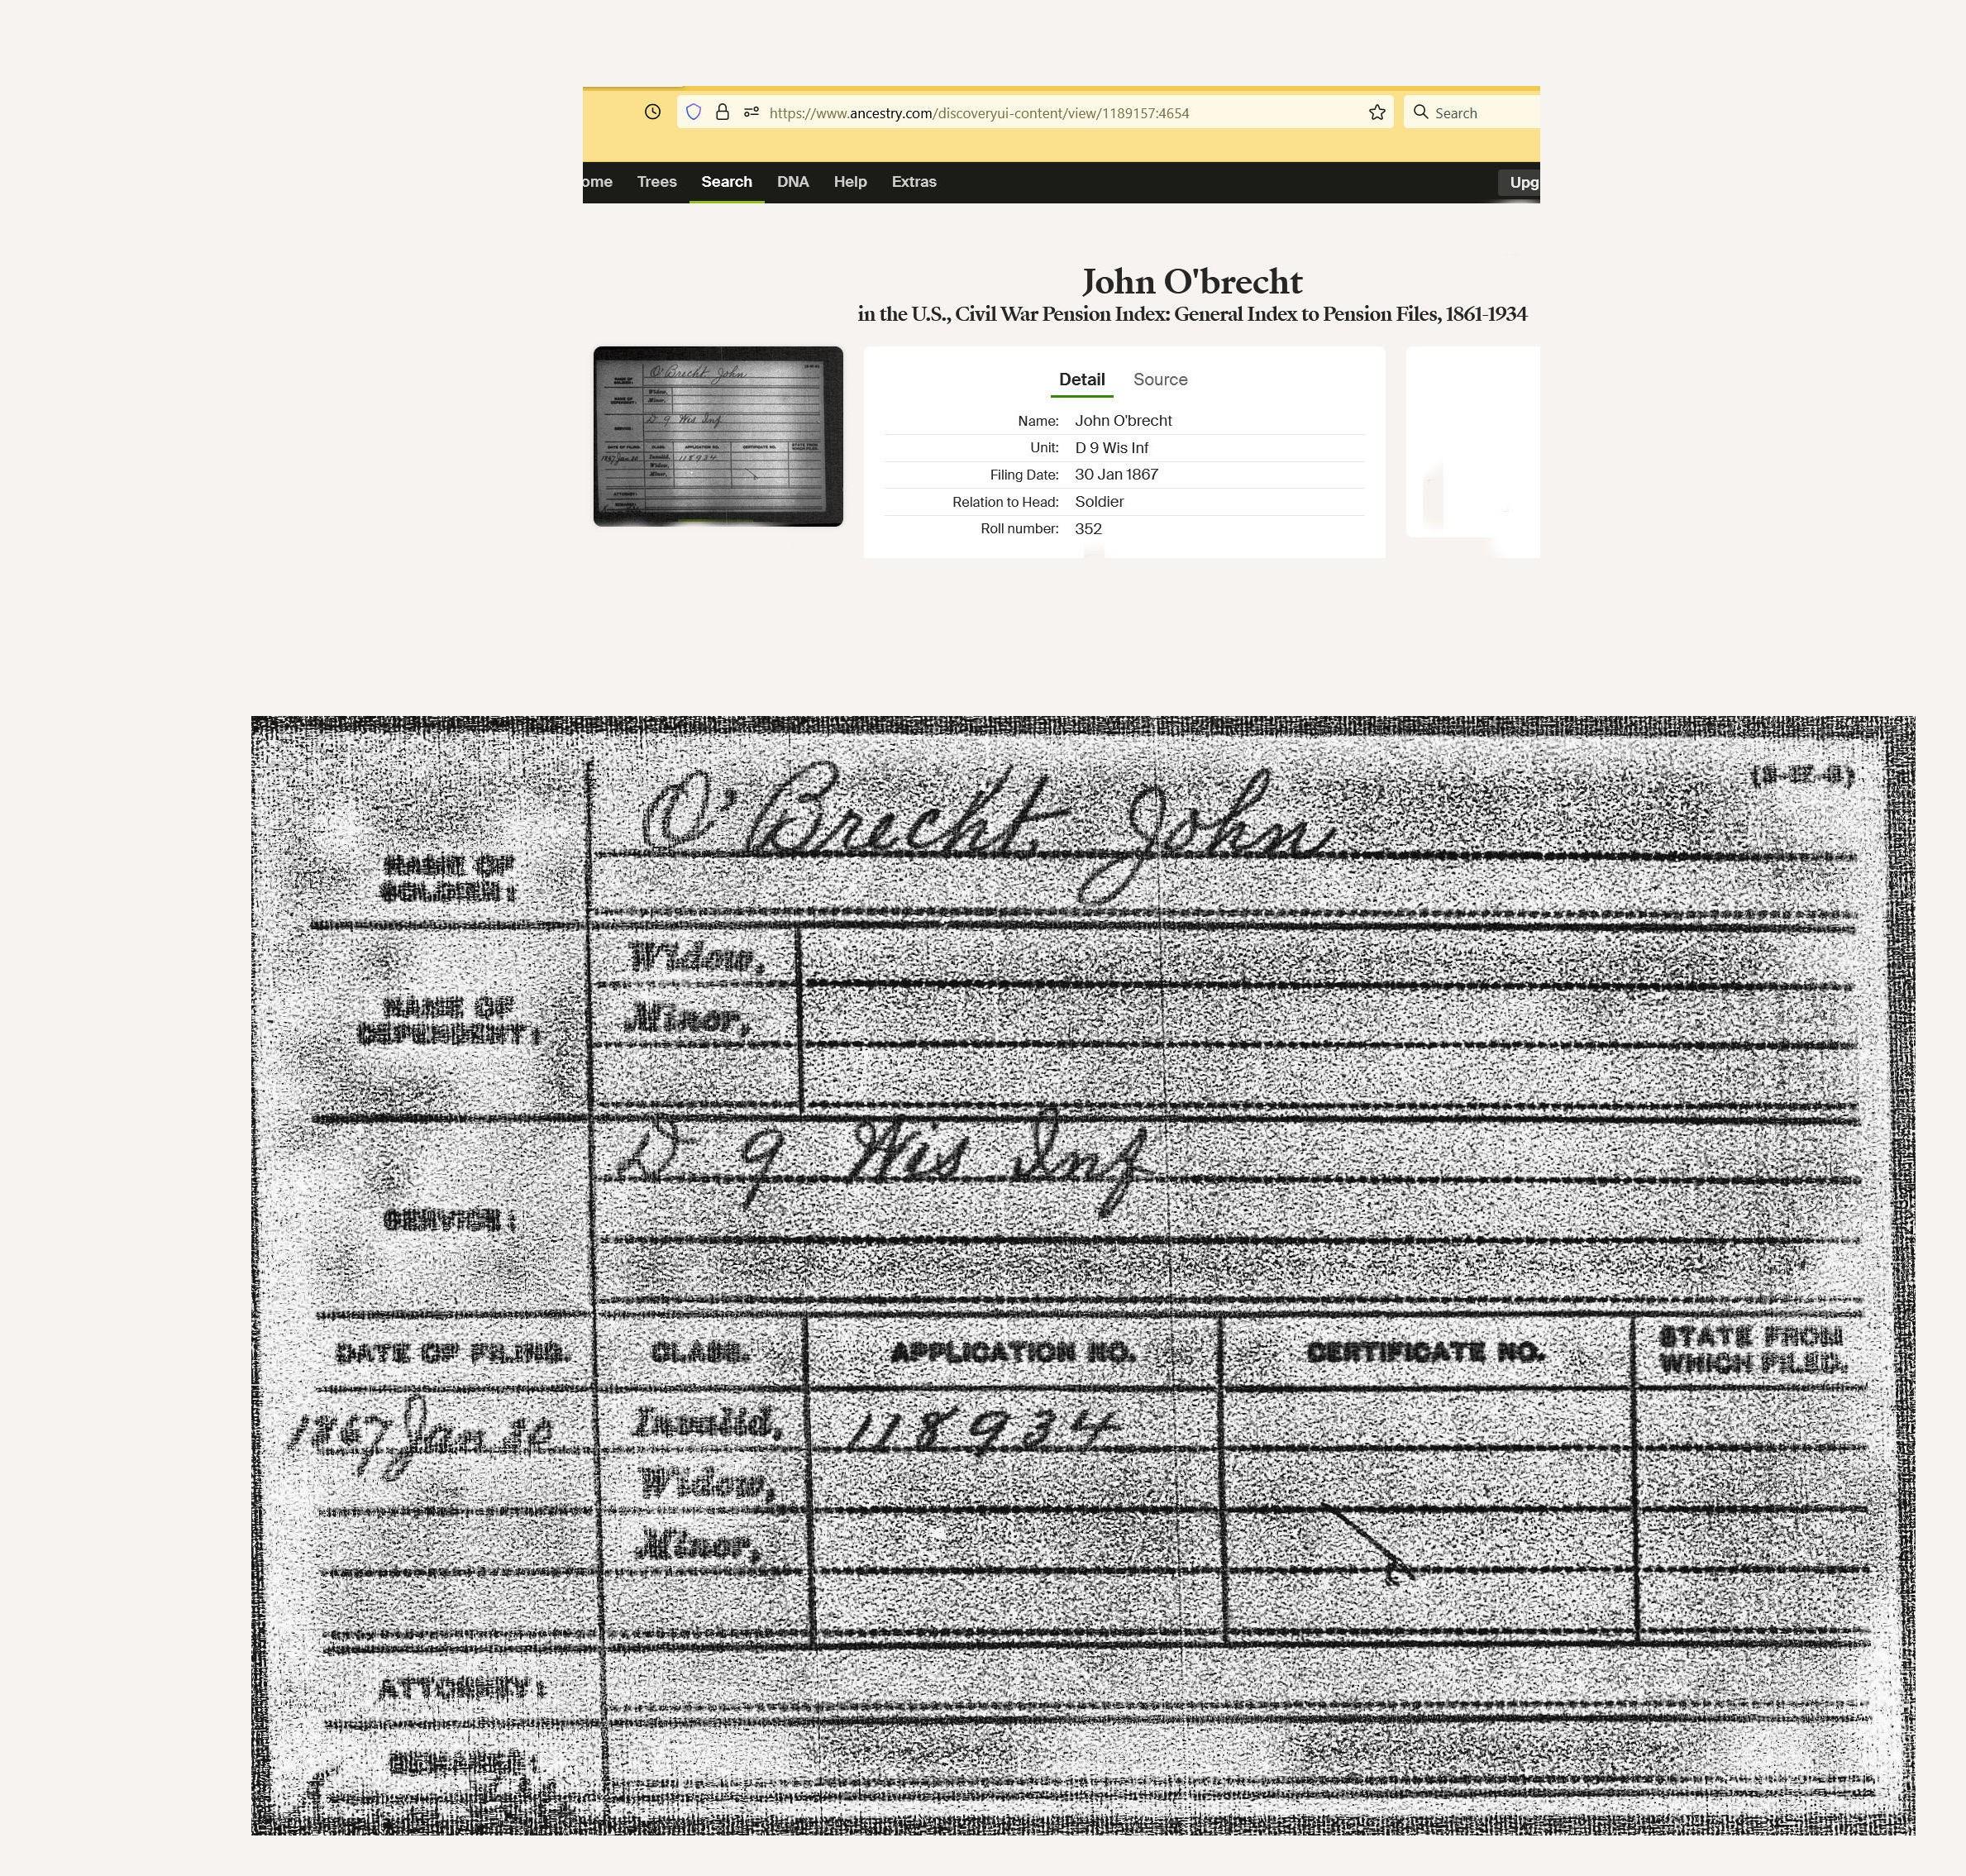 https://www.ancestry.com/discoveryui-content/view/1189157:4654
Search
ome Trees Search DNA Help Extras Upg
John O'brecht
in the U.S., Civil War Pension Index: General Index to Pension Files, 1861-1934
Detail Source
Name: John O'brecht
Unit: D 9 Wis Inf
Filing Date: 30 Jan 1867
Relation to Head: Soldier
Roll number: 352
O'Brecht, John
NAME OF
SOLDIER:
Widow,
Minor,
NAME OF
DEPENDENT:
D 9 Wis Inf
SERVICE:
DATE OF FILING. CLASS. APPLICATION NO. CERTIFICATE NO. STATE FROM
WHICH FILED.
1867 Jan 30 Invalid, 118934
Widow,
Minor,
ATTORNEY:
REMARKS: